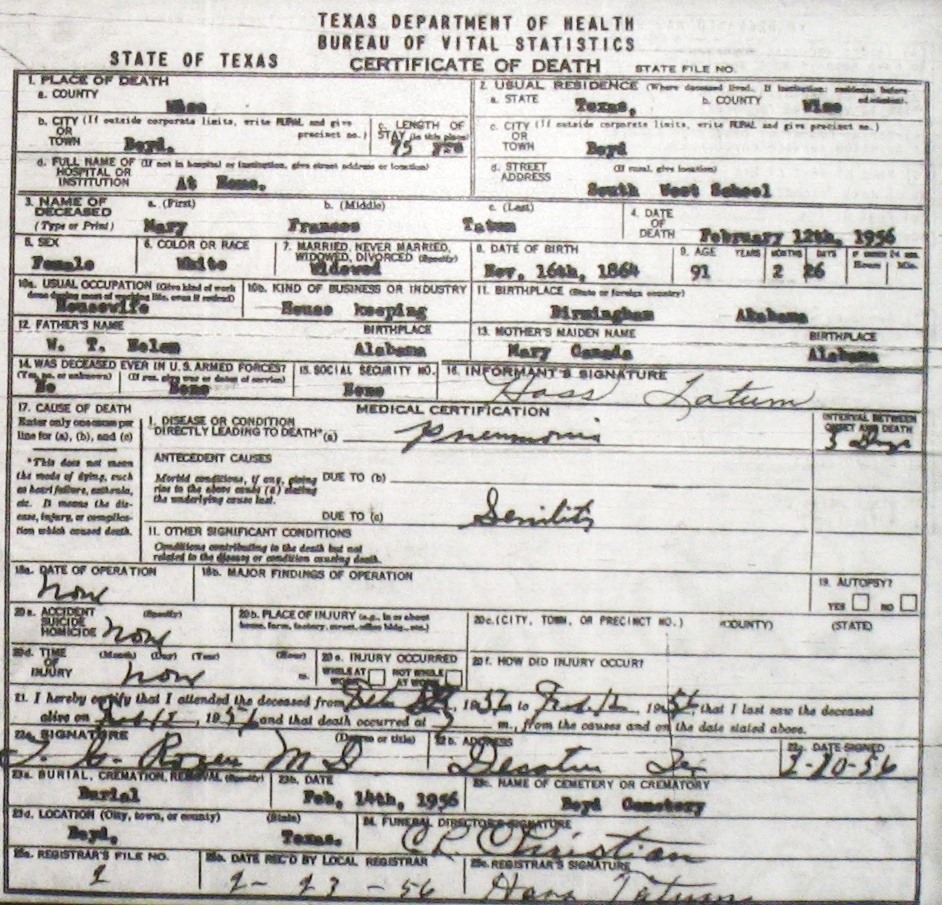 TEXAS DEPARTMENT OF HEALTH
BUREAU OF VITAL STATISTICS
STATE OF TEXAS CERTIFICATE OF DEATH STATE FILE NO.
1. PLACE OF DEATH
a. COUNTY
Wise
2. USUAL RESIDENCE (Where deceased lived. If institution: residence before admission).
a. STATE Texas, b. COUNTY Wise
b. CITY (If outside corporate limits, write RURAL and give precinct no.)
OR
TOWN Boyd.
c. LENGTH OF
STAY (in this place)
75 yrs
c. CITY (If outside corporate limits, write RURAL and give precinct no.)
OR
TOWN Boyd
d. FULL NAME OF (If not in hospital or institution, give street address or location)
HOSPITAL OR
INSTITUTION At Home.
d. STREET (If rural, give location)
ADDRESS
South West School
3. NAME OF a. (First) b. (Middle) c. (Last)
DECEASED
(Type or Print) Mary Frances Tatum
4. DATE
OF
DEATH February 12th, 1956
5. SEX
Female
6. COLOR OR RACE
White
7. MARRIED, NEVER MARRIED,
WIDOWED, DIVORCED (Specify)
Widowed
8. DATE OF BIRTH
Nov, 16th, 1864
9. AGE YEARS MONTHS DAYS IF UNDER 24 HRS.
Hours Min.
91 2 26
10a. USUAL OCCUPATION (Give kind of work
done during most of working life, even if retired)
Housewife
10b. KIND OF BUSINESS OR INDUSTRY
House keeping
11. BIRTHPLACE (State or foreign country)
Birmingham Akabama
12. FATHER'S NAME BIRTHPLACE
W. T. Alabama
13. MOTHER'S MAIDEN NAME BIRTHPLACE
Mary Canada Alabama
14. WAS DECEASED EVER IN U.S. ARMED FORCES?
(Yes, no, or unknown) (If yes, give war or dates of service)
No None
15. SOCIAL SECURITY NO.
None
16. INFORMANT'S SIGNATURE
Tatum
17. CAUSE OF DEATH
Enter only one cause per
line for (a), (b), and (c)
*This does not mean
the mode of dying, such
as heart failure, asthenia,
etc. It means the dis-
ease, injury, or complica-
tion which caused death.
MEDICAL CERTIFICATION
I. DISEASE OR CONDITION
DIRECTLY LEADING TO DEATH* (a) Pneumonia
INTERVAL BETWEEN
ONSET AND DEATH
3 Days
ANTECEDENT CAUSES
Morbid conditions, if any, giving
rise to the above cause (a) stating
the underlying cause last.
DUE TO (b)
DUE TO (c) Senility
11. OTHER SIGNIFICANT CONDITIONS
Conditions contributing to the death but not
related to the disease or condition causing death.
18a. DATE OF OPERATION
None
18b. MAJOR FINDINGS OF OPERATION
19. AUTOPSY?
YES NO
20a. ACCIDENT (Specify)
SUICIDE
HOMICIDE None
20b. PLACE OF INJURY (e.g., in or about
home, farm, factory, street, office bldg., etc.)
20c. (CITY, TOWN, OR PRECINCT NO.) (COUNTY) (STATE)
20d. TIME (Month) (Day) (Year) (Hour)
OF
INJURY None m.
20e. INJURY OCCURRED
WHILE AT WORK NOT WHILE AT WORK
20f. HOW DID INJURY OCCUR?
21. I hereby certify that I attended the deceased from Feb 1956 to Feb 12, 1956, that I last saw the deceased
alive on Feb 12, 1956 and that death occurred at m., from the causes and on the date stated above.
22a. SIGNATURE (Degree or title)
T. G. Rogers M D
22b. ADDRESS
Decatur Tex
22c. DATE SIGNED
2-20-56
23a. BURIAL, CREMATION, REMOVAL (Specify)
Burial
23b. DATE
Feb, 14th, 1956
23c. NAME OF CEMETERY OR CREMATORY
Boyd Cemetery
23d. LOCATION (City, town, or county) (State)
Boyd, Texas.
24. FUNERAL DIRECTOR'S SIGNATURE
C. P. Christian
25a. REGISTRAR'S FILE NO.
2
25b. DATE REC'D BY LOCAL REGISTRAR
2-23-56
25c. REGISTRAR'S SIGNATURE
Tatum